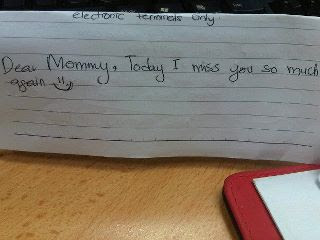 electronic terminals only.
Dear Mommy, Today I miss you so much
again